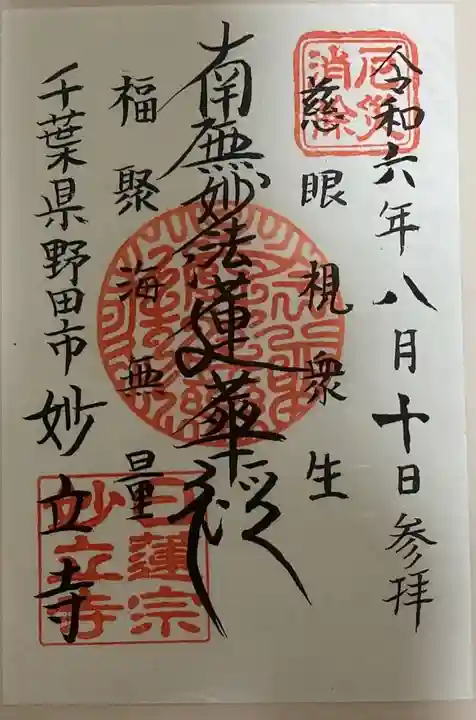 令和六年八月十日参拝
慈眼視衆生
南無妙法蓮華経
福聚海無量
千葉県野田市妙立寺
日蓮宗
妙立寺